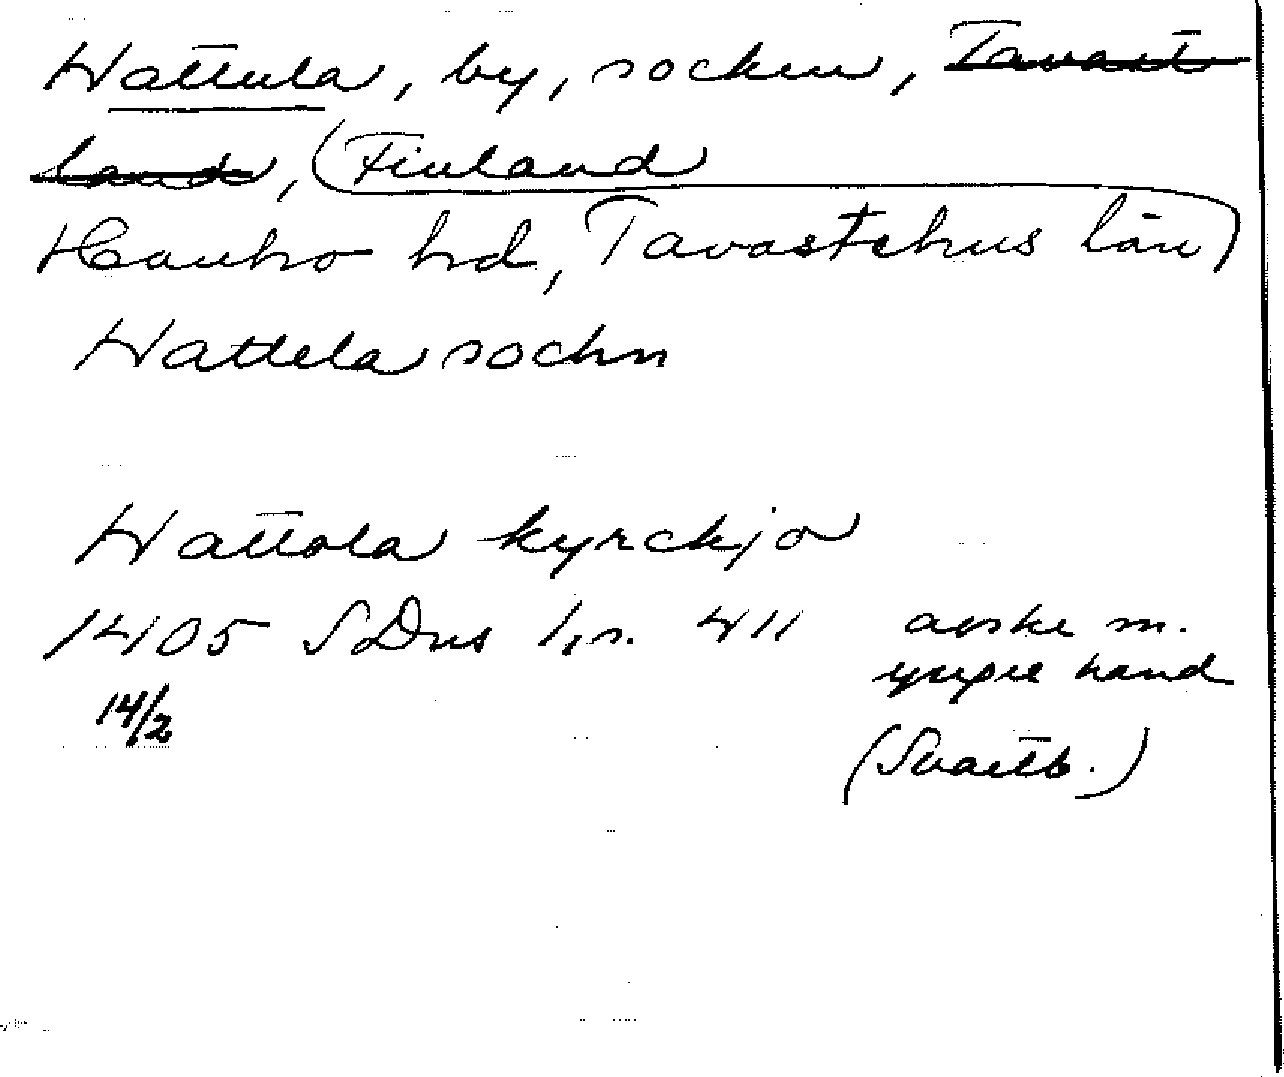 Hattula, by, socken, Tavast
land, (Finland
Hauho hd, Tavastehus län)
Hattela sochn
Hattola kyrckjo
1405 SDns 1, s. 411 avskr m.
14/2 yngre hand
(Svartb.)